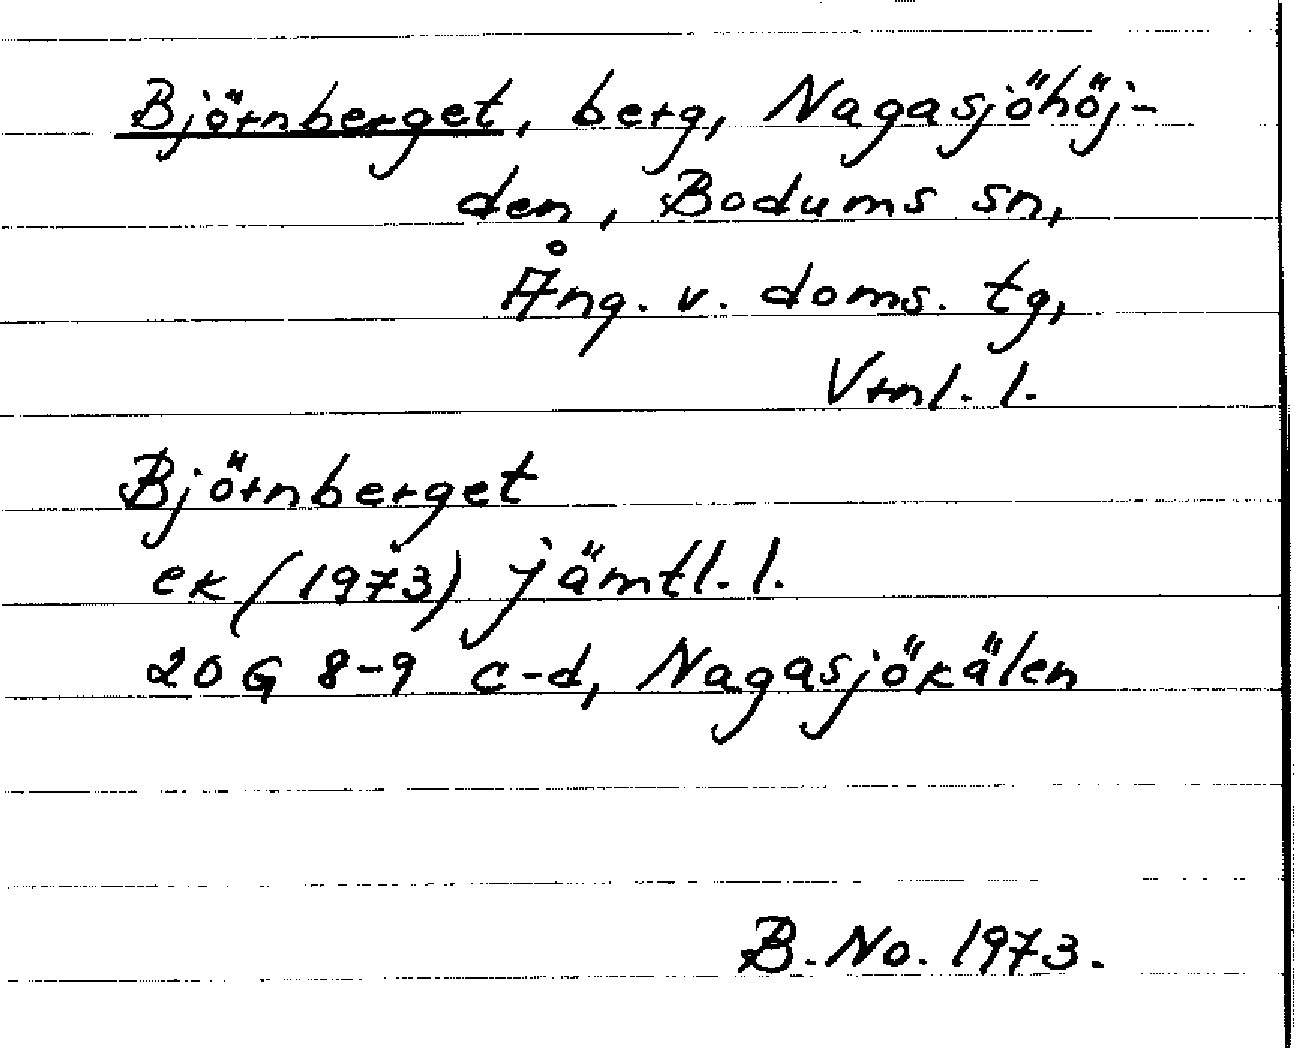 Björnberget, berg, Nagasjöhöj-
den, Bodums sn,
Ång. v. doms. tg,
Vrnl. l.
Björnberget
ek (1973) jämtl. l.
20 G 8-9 c-d, Nagasjökälen
B. No. 1973.